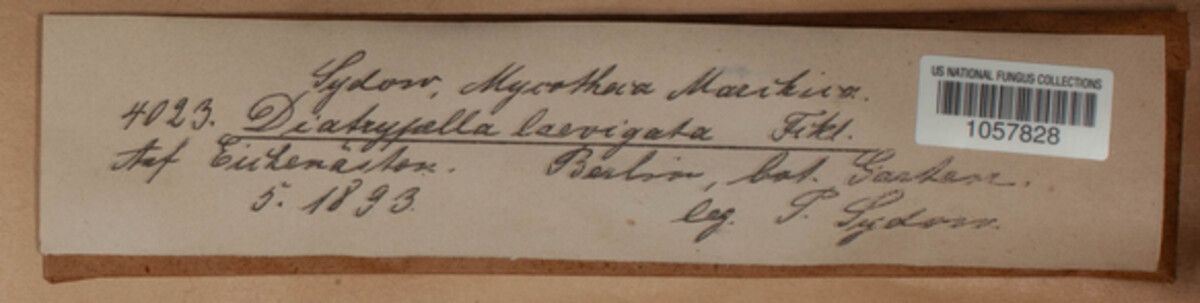 Sydow, Mycotheca Marchica.
4023. Diatrypella laevigata Fckl.
Auf Eichenästen. Berlin, bot. Garten.
5. 1893. leg. P. Sydow.
US NATIONAL FUNGUS COLLECTIONS
1057828